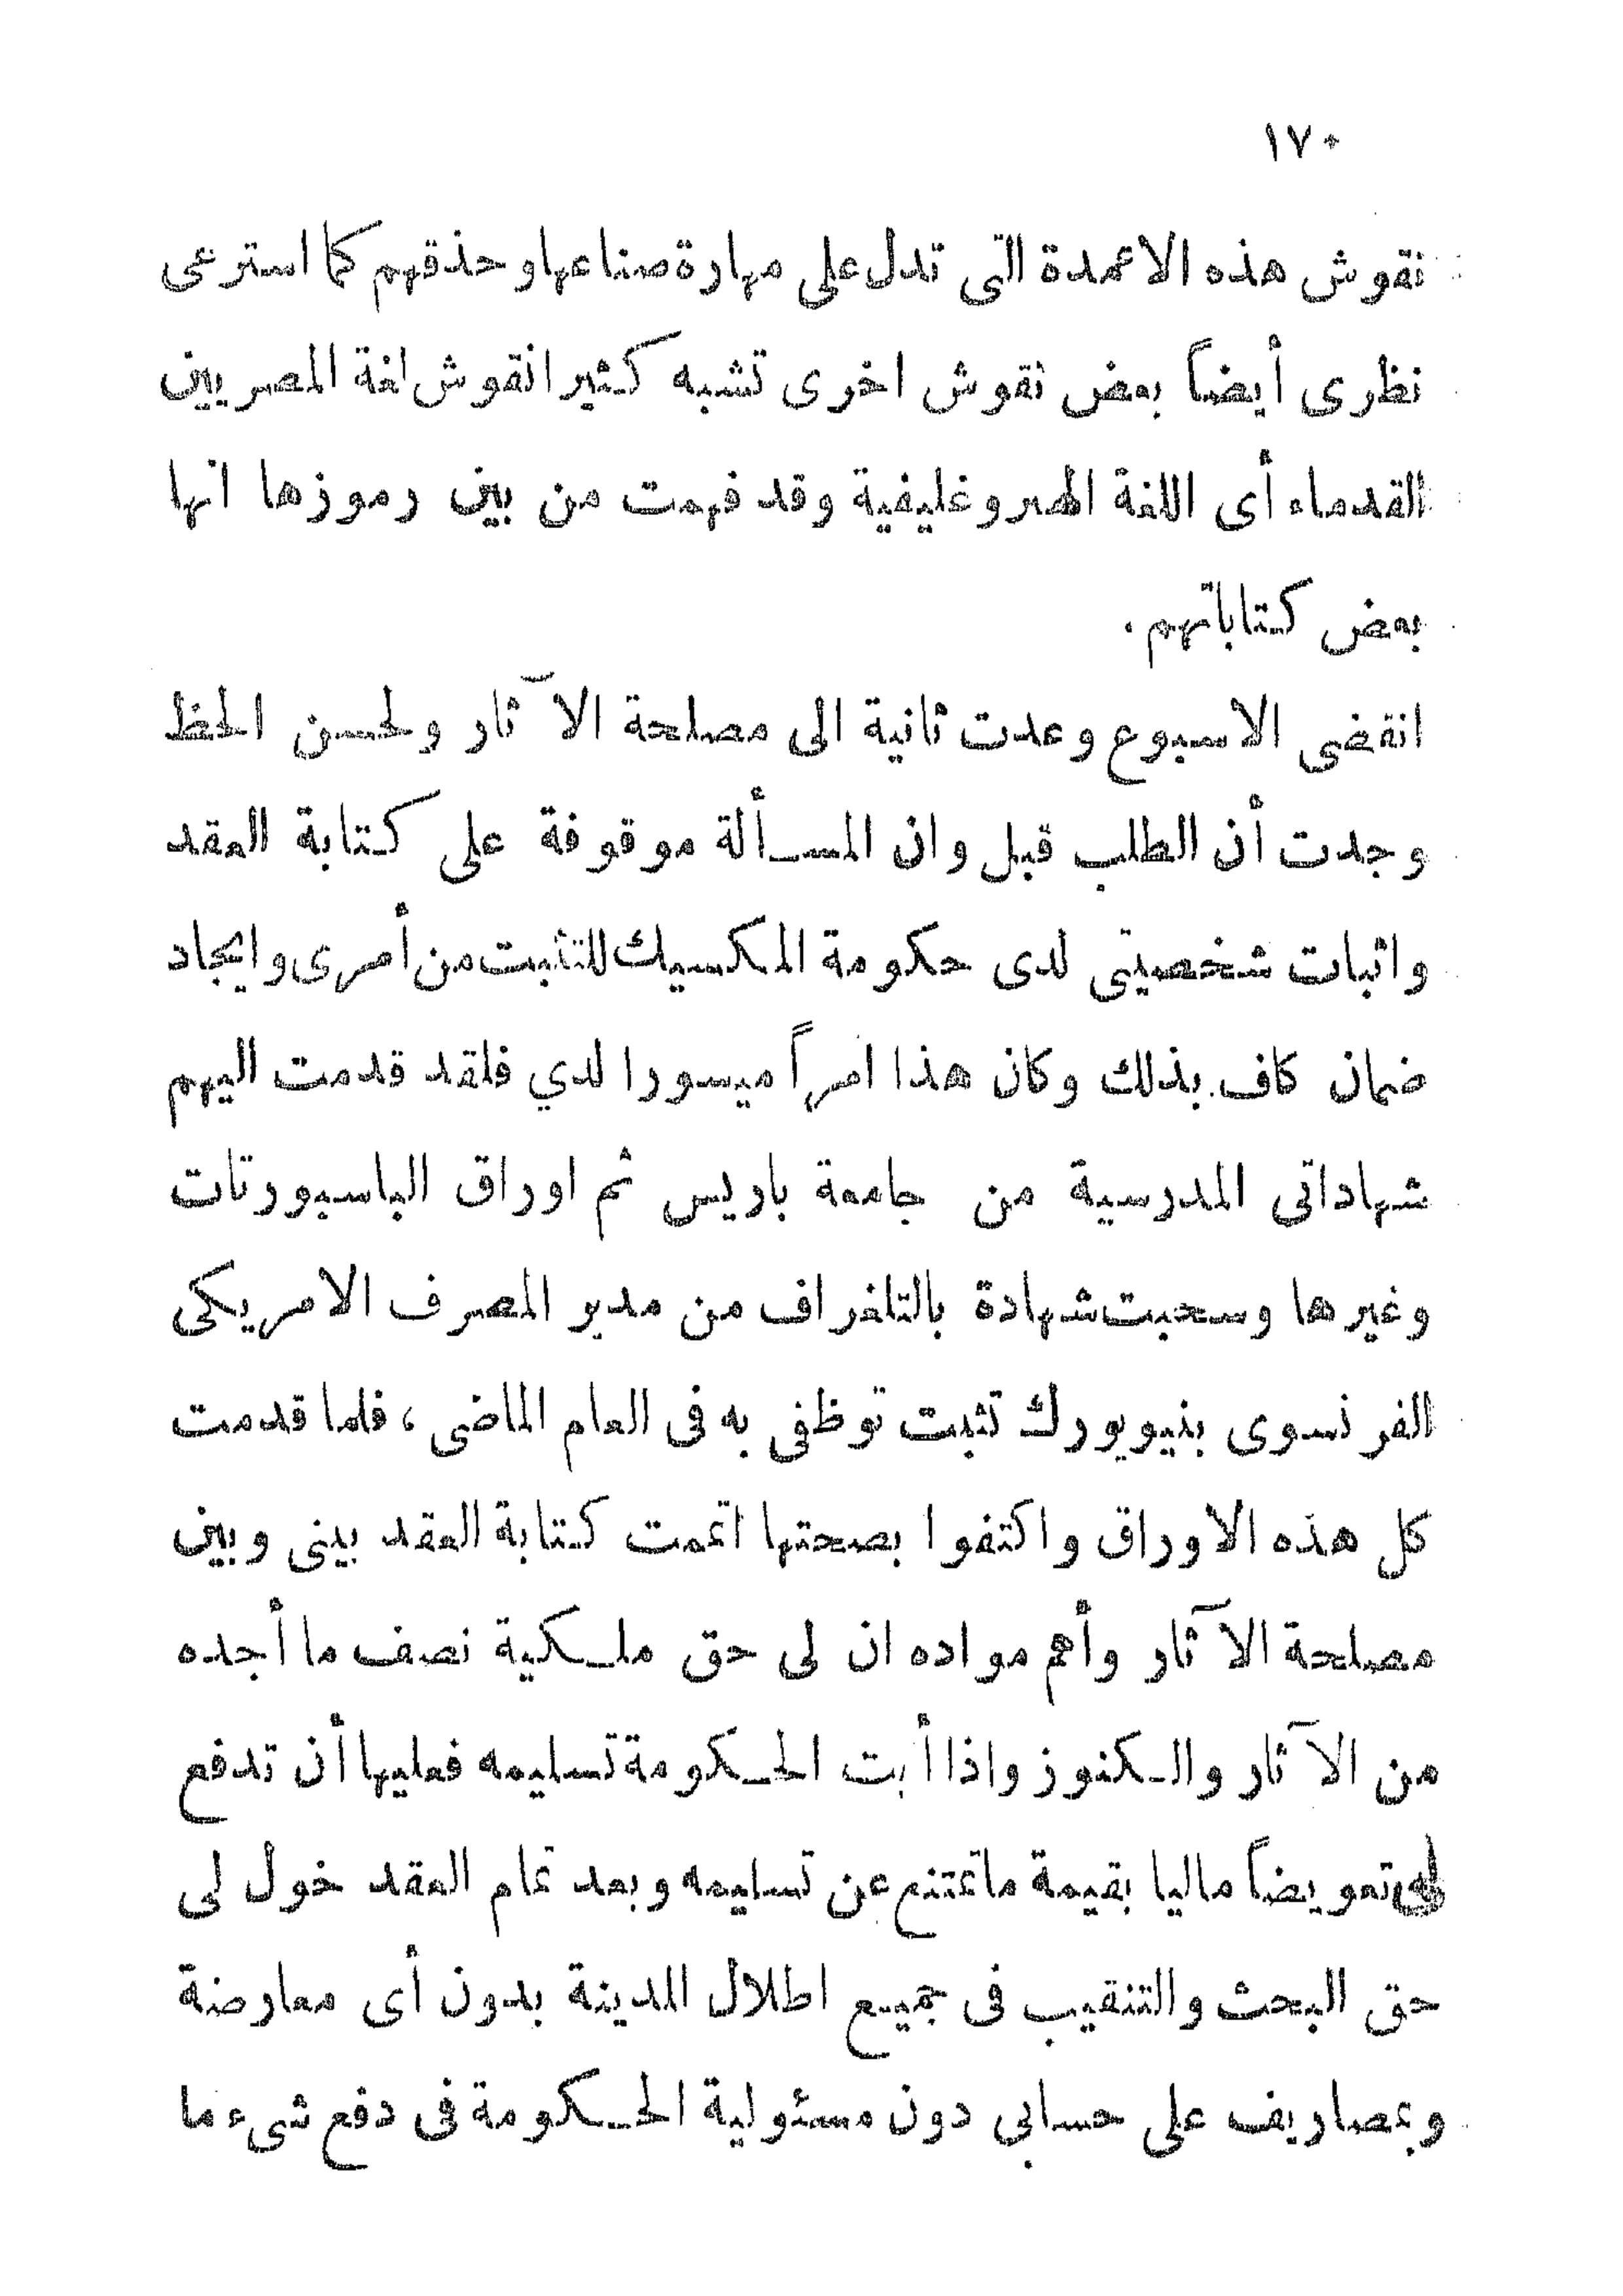 ١٧٠
نقوش هذه الاعمدة التى تدل على مهارة صناعها وحذقهم كما استرعى
نظرى أيضاً بعض نقوش اخرى تشبه كثيرا نقوش لغة المصريين
القدماء أى اللغة الهيروغليفية وقد فهمت من بين رموزها انها
بعض كتاباتهم .
انقضى الاسبوع وعدت ثانية الى مصلحة الآثار ولحسن الحظ
وجدت أن الطلب قبل وان المسألة موقوفة على كتابة العقد
واثبات شخصيتى لدى حكومة المكسيك للتثبت من أمرى وايجاد
ضمان كاف بذلك وكان هذا امراً ميسورا لدي فلقد قدمت اليهم
شهاداتى المدرسية من جامعة باريس ثم اوراق الباسبورتات
وغيرها وسحبت شهادة بالتلغراف من مدير المصرف الامريكى
الفرنسوى بنيويورك تثبت توظفى به فى العام الماضى ، فلما قدمت
كل هذه الاوراق واكتفوا بصحتها اتممت كتابة العقد بينى وبين
مصلحة الآثار وأهم مواده ان لى حق ملكية نصف ما أجده
من الآثار والكنوز واذا أبت الحكومة تسليمه فعليها أن تدفع
لى تعويضاً ماليا بقيمة ما تمتنع عن تسليمه وبعد تمام العقد خول لى
حق البحث والتنقيب فى جميع اطلال المدينة بدون أى معارضة
وبمصاريف على حسابى دون مسئولية الحكومة فى دفع شىء ما